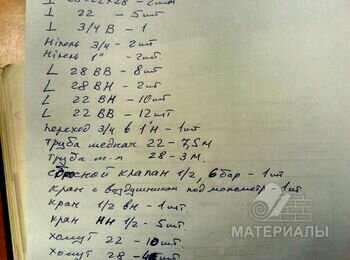 ⊥ 28×22×28 - 2шт
⊥ 22 - 5шт
⊥ 3/4 В - 1
Нипель 3/4 - 2шт
Нипель 1" - 2шт.
L 28 ВВ - 8шт
L 28 ВН - 2шт
L 22 ВН - 10шт
L 22 ВВ - 12шт
Переход 3/4 в 1"Н - 1шт
Труба медная 22 - 7,5м
Труба м-л 28 - 3м.
сбросной клапан 1/2, 6бар - 1шт
кран с воздушником под монометр - 1шт
кран 1/2 вн - 1шт.
кран НН 1/2 - 5шт.
хомут 22 - 10шт
хомут 28 - 4шт
МАТЕРИАЛЫ